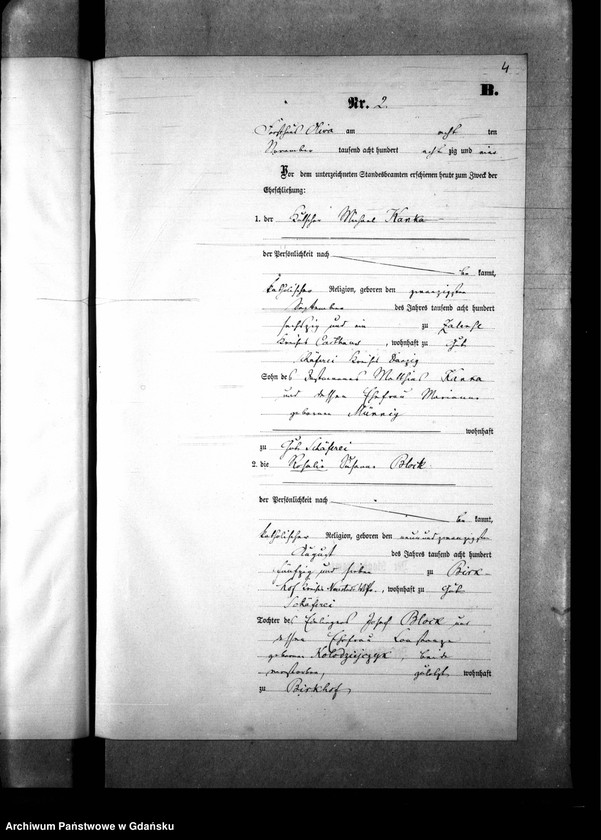 4
B.
Nr. 2.
Forsthaus Oliva am acht ten
November tausend acht hundert acht zig und vier
Vor dem unterzeichneten Standesbeamten erschienen heute zum Zweck der
Eheschließung:
1. der Kutscher Michael Kanka
der Persönlichkeit nach
be kannt,
katholischer Religion, geboren den zwanzigsten
September des Jahres tausend acht hundert
sechszig und ein zu Zalense
Kreises Carthaus, wohnhaft zu Gut
Schäferei Kreises Danzig
Sohn des Matthias Kanka
und dessen Ehefrau Marianna
geborenen
wohnhaft
zu Gut Schäferei
2. die Rosalie Susanna Block
der Persönlichkeit nach
be kannt,
katholischer Religion, geboren den neunundzwanzigsten
August des Jahres tausend acht hundert
fünfzig und sieben zu Birk-
hof Kreises Neustadt WPr., wohnhaft zu Gut
Schäferei
Tochter des Josef Block und
dessen Ehefrau Constanze
geborenen Kolodziejczyk, beide
verstorben, zuletzt wohnhaft
zu Birkhof,
Archiwum Państwowe w Gdańsku